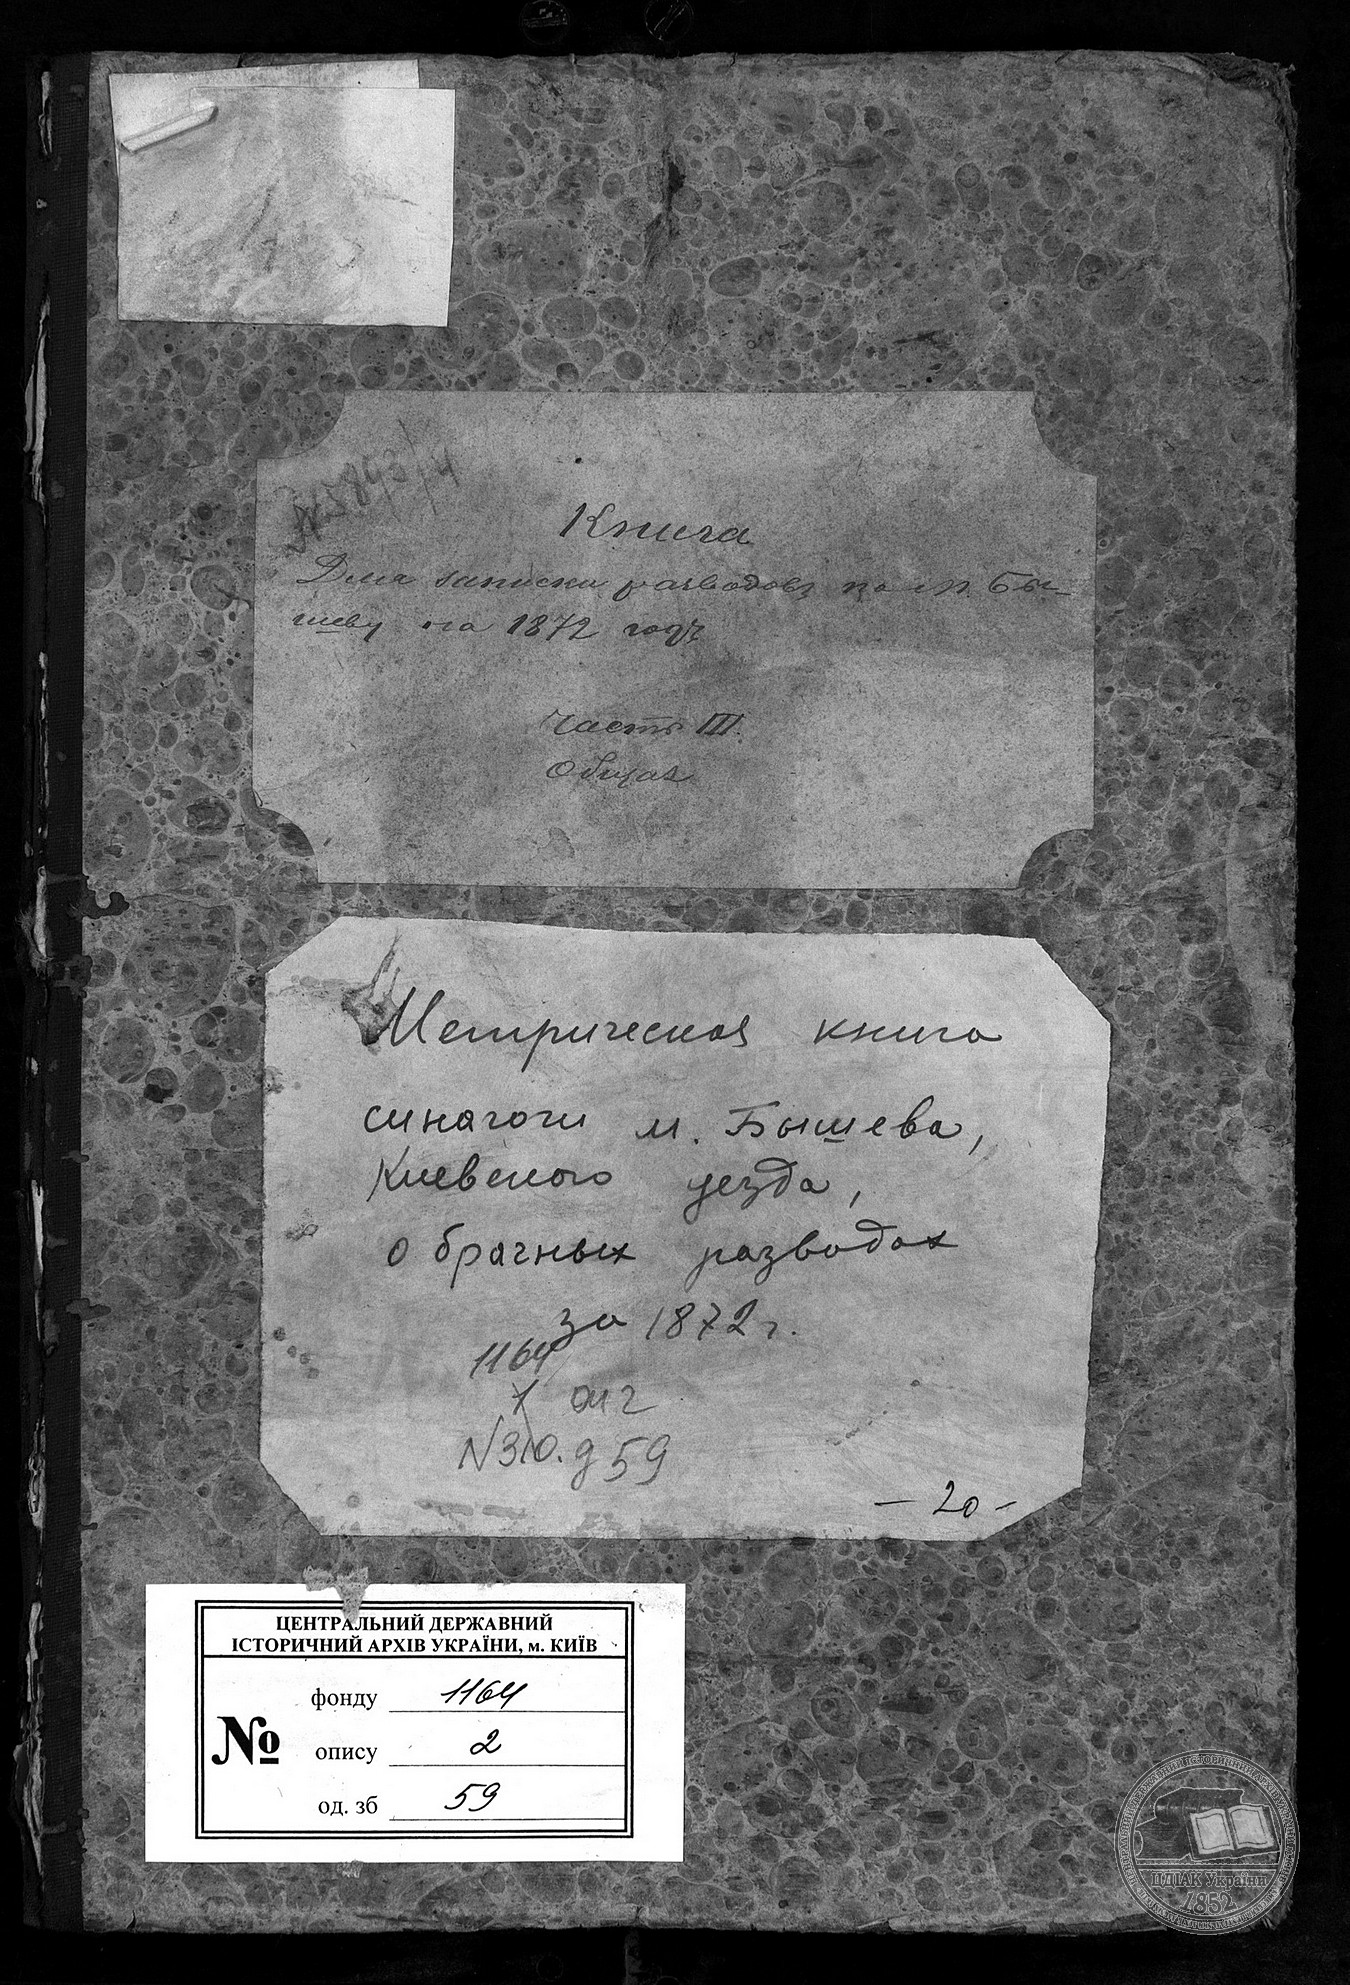 Книга
Для записки разводовъ по м. Бы-
шеву на 1872 годъ
Часть III.
Общая
Метрическая книга
синагоги м. Бышева,
Киевского уезда,
о брачных разводах
за 1872 г.
1164
оп 2
N310. д 59
- 20 -
ЦЕНТРАЛЬНИЙ ДЕРЖАВНИЙ
ІСТОРИЧНИЙ АРХІВ УКРАЇНИ, м. КИЇВ
№
фонду 1164
опису 2
од. зб 59
ЦДІАК України
1852